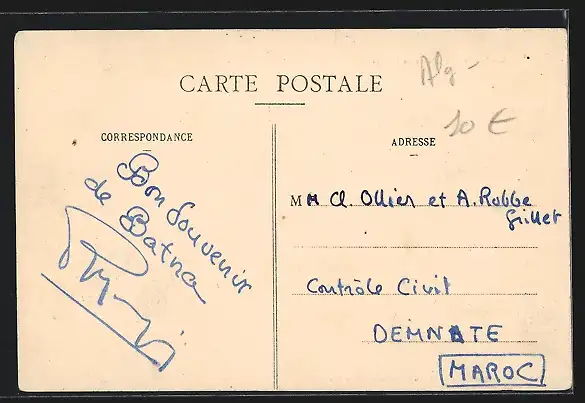 CARTE POSTALE
Alg -
10 €
CORRESPONDANCE
Bon Souvenir
de Batna
ADRESSE
MM Cl. Ollier et A. Robbe
Grillet
Contrôle Civil
DEMNATE
MAROC